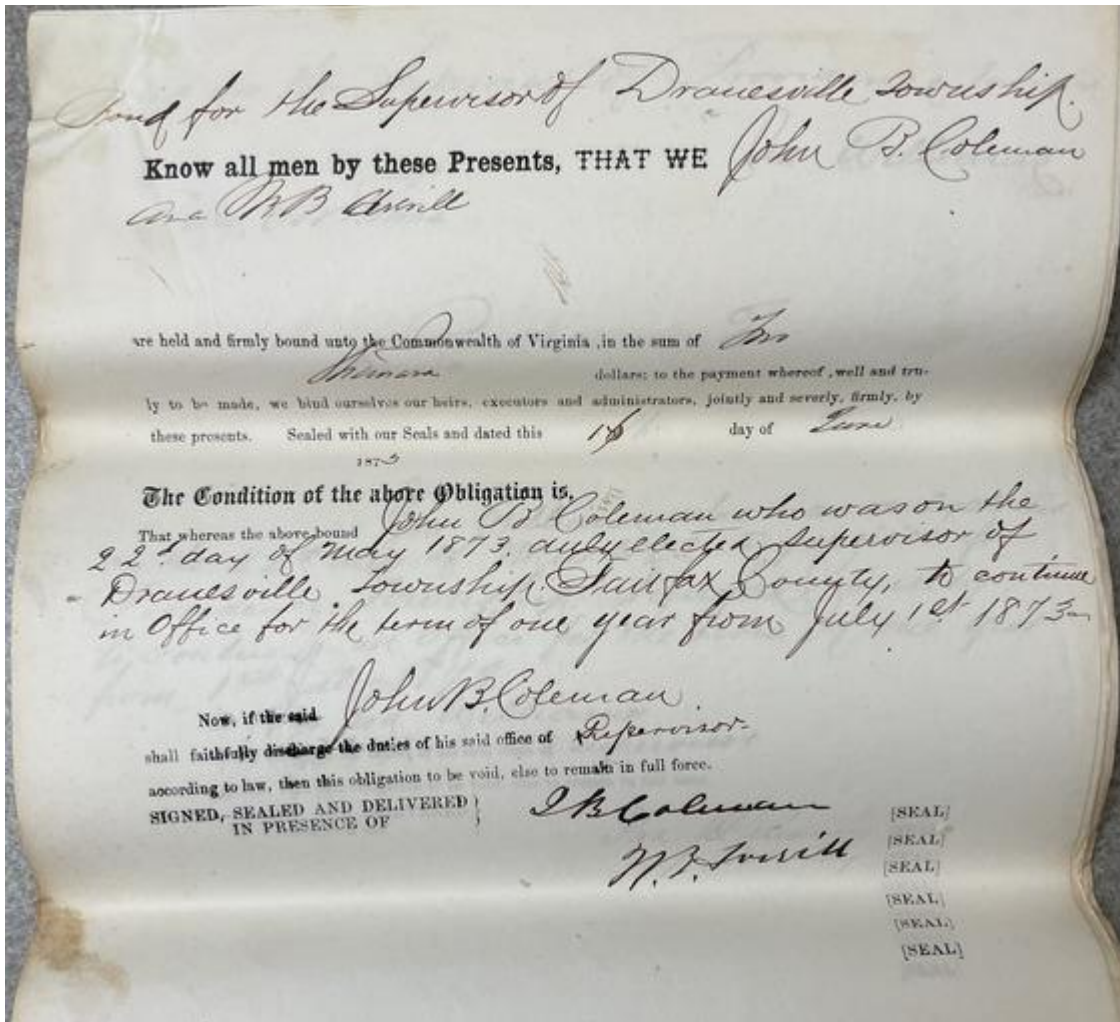 Bond for the Supervisor of Dranesville Township.
Know all men by these Presents, THAT WE John B. Coleman
and
are held and firmly bound unto the Commonwealth of Virginia, in the sum of
Thousand dollars; to the payment whereof, well and tru-
ly to be made, we bind ourselves our heirs, executors and administrators, jointly and severly, firmly, by
these presents. Sealed with our Seals and dated this day of June
1873
The Condition of the above Obligation is,
That whereas the above bound John B Coleman who was on the
22d day of May 1873. duly elected Supervisor of
Dranesville Township Fairfax County, to continue
in Office for the term of one year from July 1st 1873
Now, if the said John B. Coleman
shall faithfully discharge the duties of his said office of Supervisor
according to law, then this obligation to be void, else to remain in full force.
SIGNED, SEALED AND DELIVERED }
IN PRESENCE OF
J B Coleman [SEAL]
[SEAL]
[SEAL]
[SEAL]
[SEAL]
[SEAL]